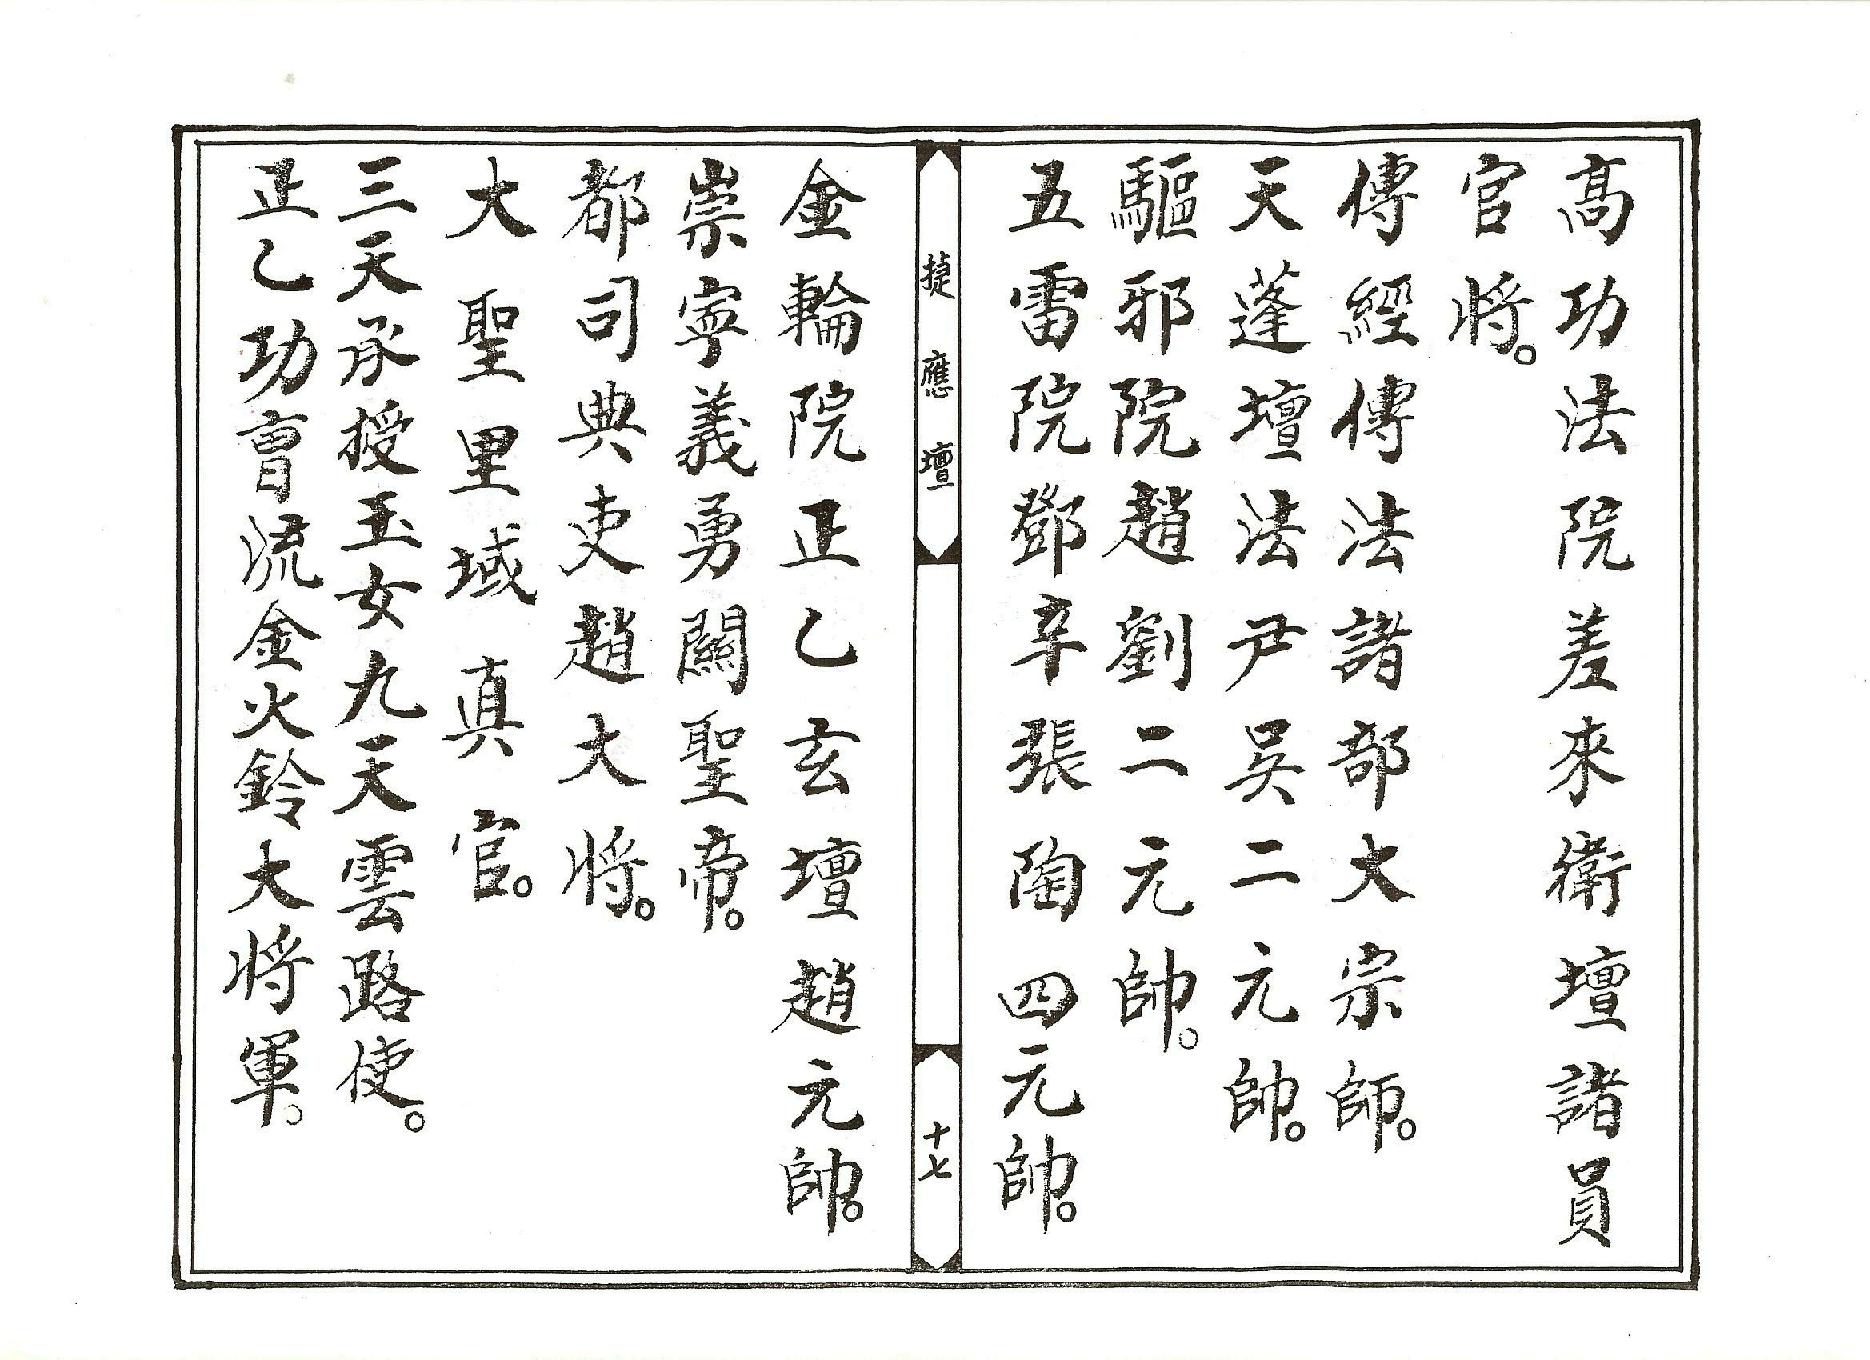 高功法院差來衛壇諸員
官将。
傳經傳法諸部大宗師。
天蓬壇法尹吴二元帥。
驅邪院趙劉二元帥。
五雷院鄧辛張陶四元帥。
捷應壇
十七
金輪院正乙玄壇趙元帥。
崇寧義勇關聖帝。
都司典吏趙大将。
大聖里域真官。
三天承授玉女九天雲路使。
正乙功曹流金火鈴大将軍。